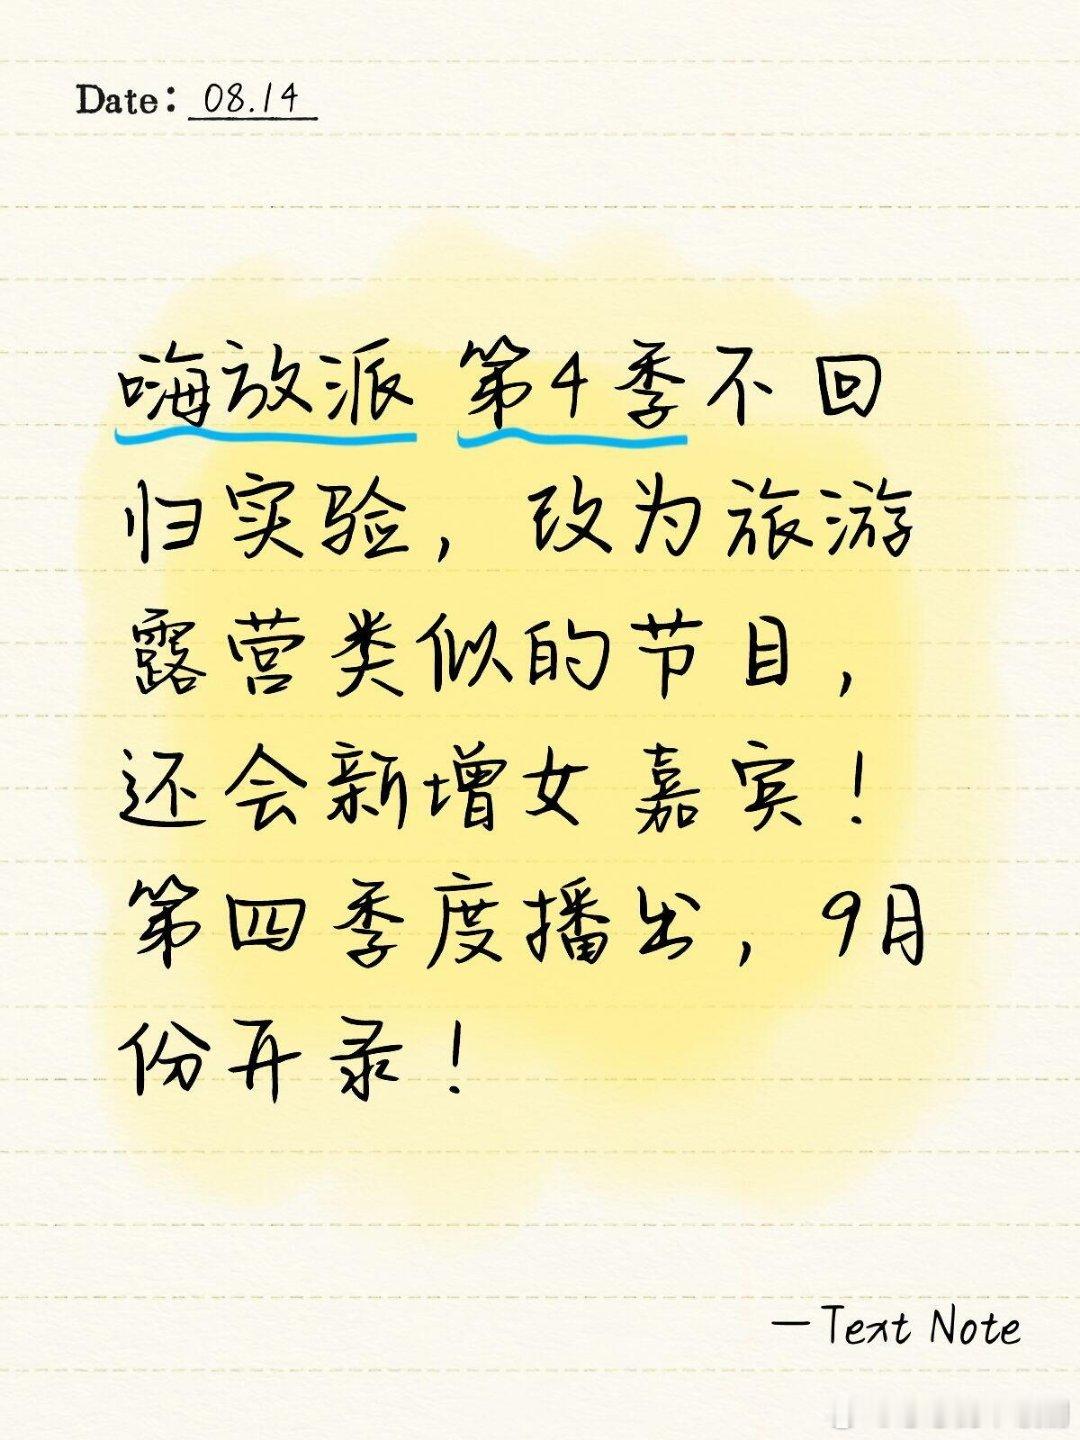 Date: 08.14
嗨放派 第4季不回
归实验，改为旅游
露营类似的节目，
还会新增女嘉宾！
第四季度播出，9月
份开录！
—Text Note